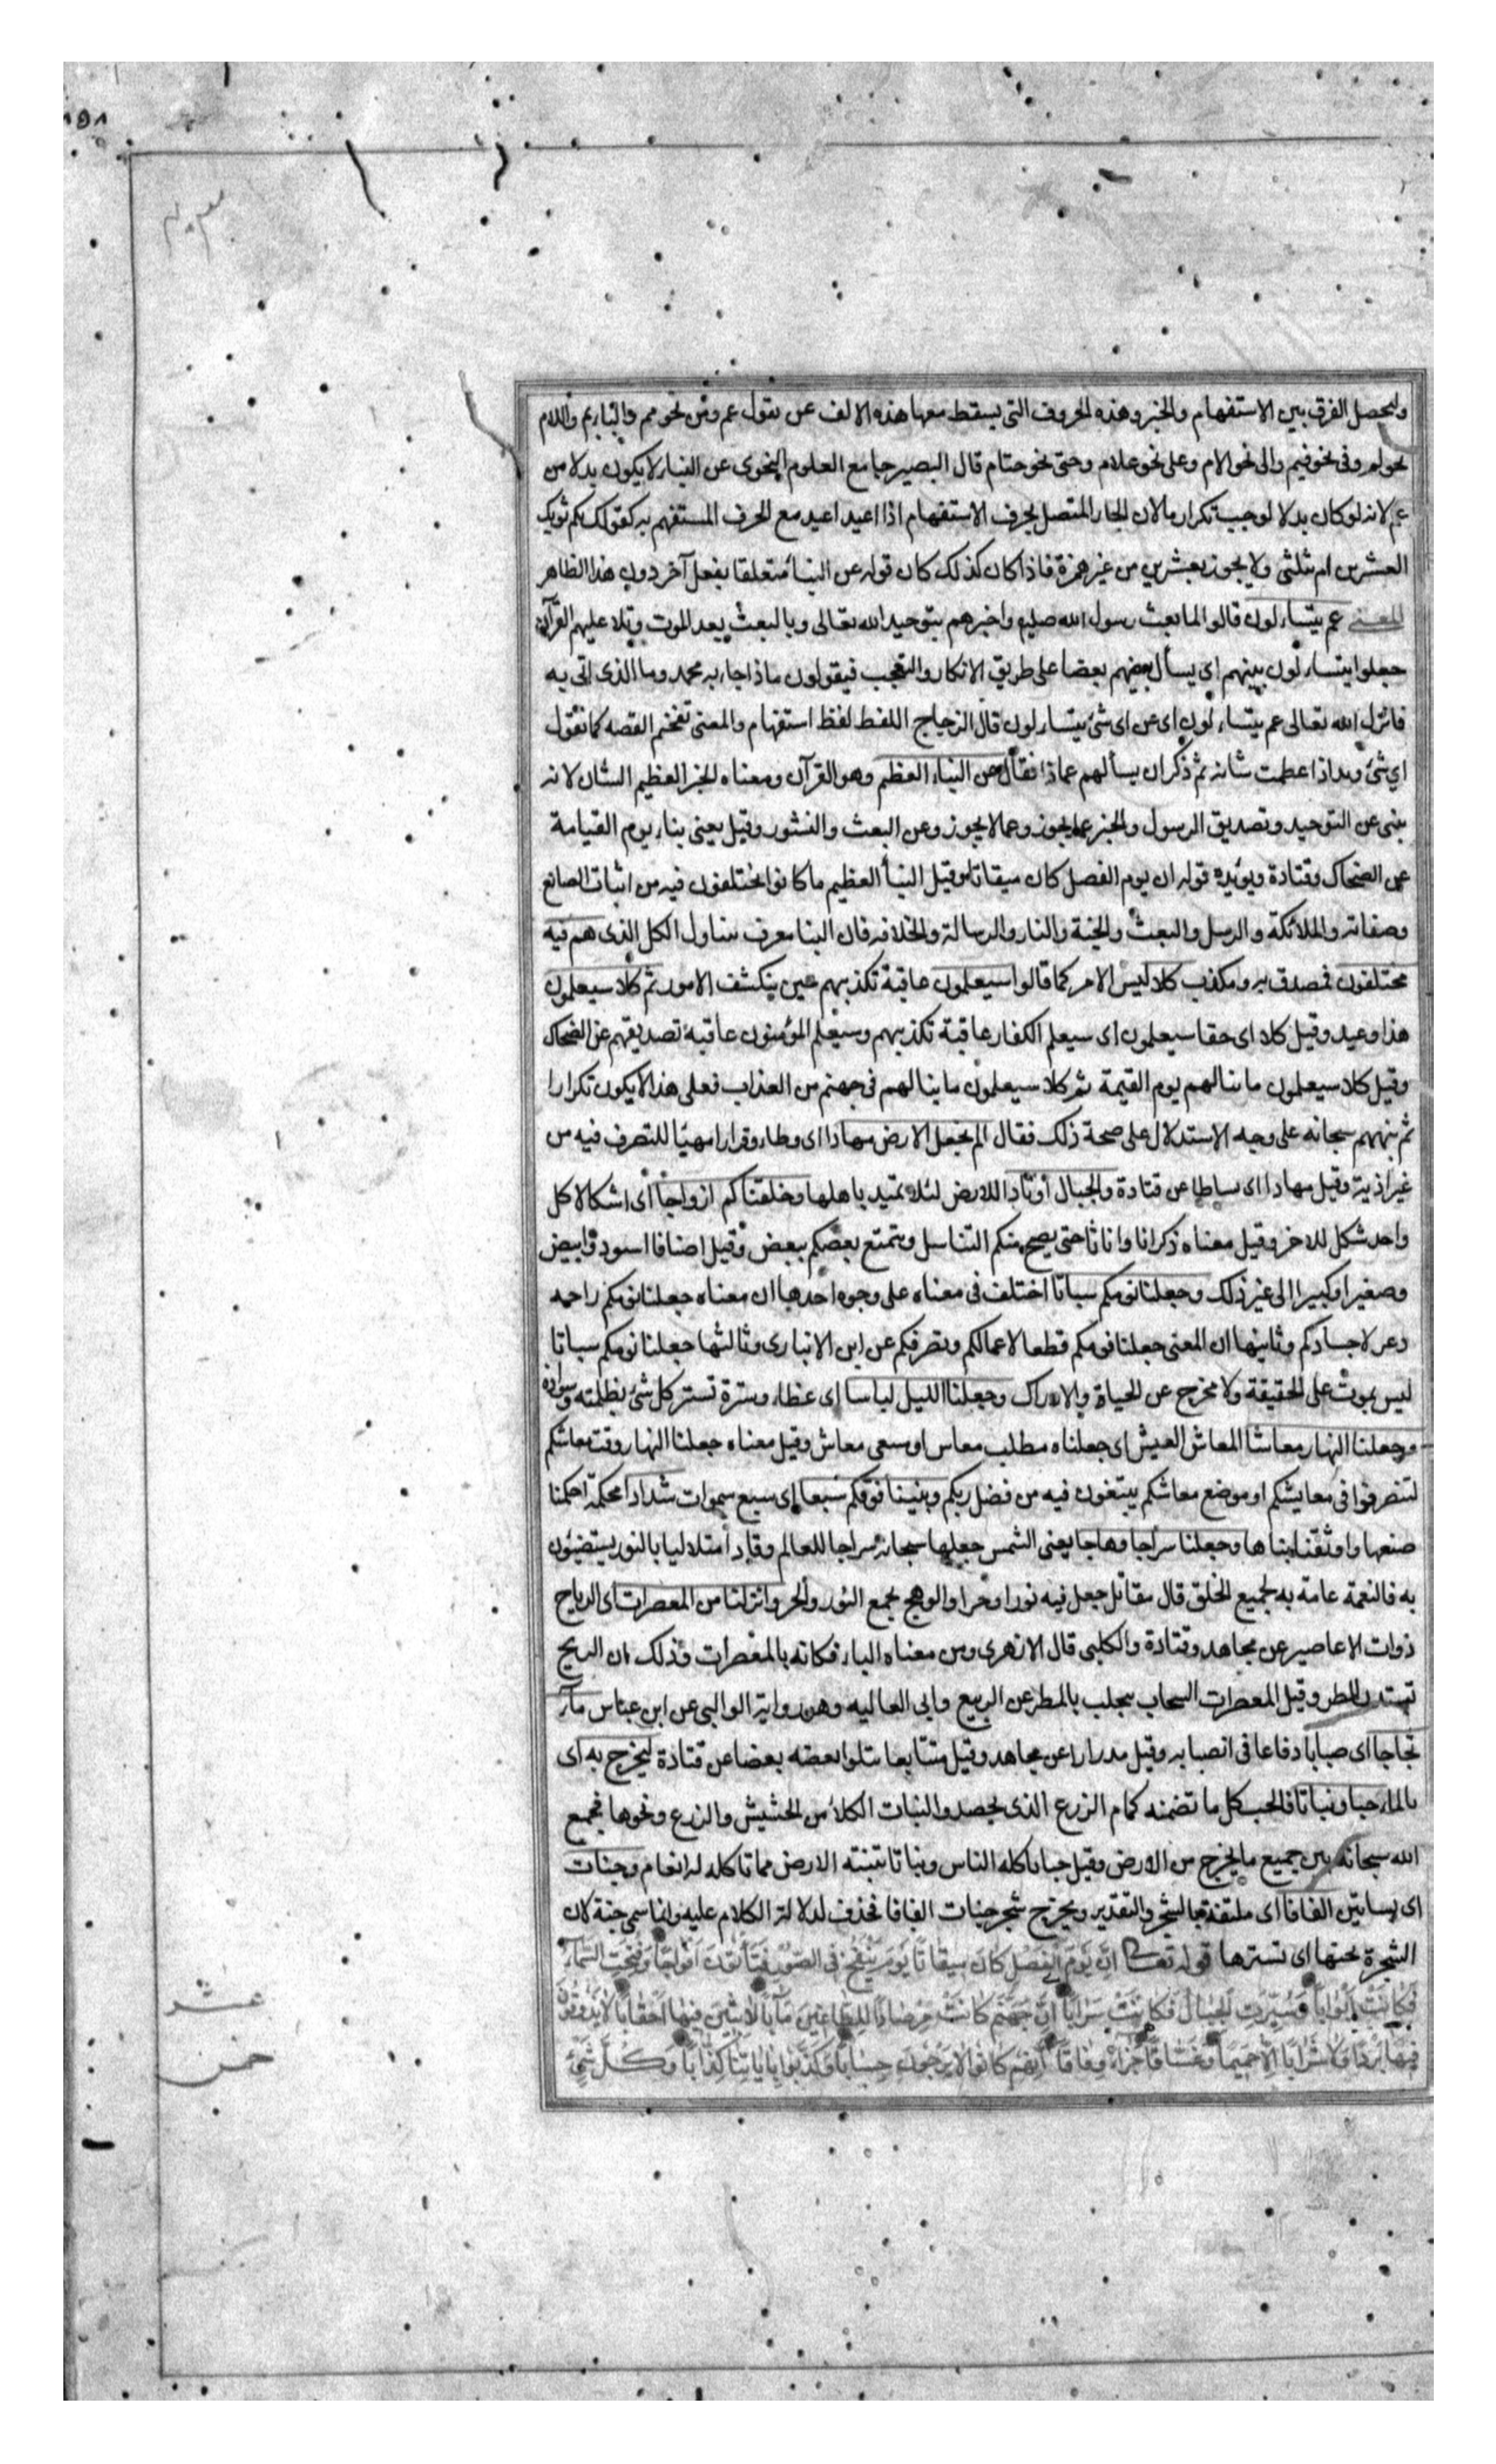 وليحصل الفرق بين الاستفهام والخبر وهذه الحروف التى يسقط معها هذه الالف عن تقول عم ومن نحو مم والباء بم واللام
نحو لم وفى نحو فيم والى نحو الام وعلى نحو علام وحتى نحو حتام قال البصير جامع العلوم النحوى عن النباء لا يكون بدلا من
عم لانه لو كان بدلا لوجب تكرار ما لان الجار المتصل بحرف الاستفهام اذا اعيد اعيد مع الحرف المستفهم به كقولك بكم ثوبك
العشرين ام ثلثى ولا يجوز بعشرين من غير همزة فاذا كان كذلك كان قوله عن النبأ متعلقا بفعل آخر دون هذا الظاهر
المعنى عم يتساءلون قالوا لما بعث رسول الله صليع واخبرهم بتوحيد الله تعالى وبالبعث بعد الموت وتلا عليهم القرآن
جعلوا يتساءلون بينهم اى يسأل بعضهم بعضا على طريق الانكار والتعجب فيقولون ماذا جاء به محمد وما الذى اتى به
فانزل الله تعالى عم يتساءلون اى عن اى شئ يتساءلون قال الزجاج اللفظ لفظ استفهام والمعنى تفخيم القصه كما تقول
اي شئ زيد اذا عظمت شانه ثم ذكر ان يسألهم عماذا فقال عن النباء العظيم وهو القرآن ومعناه الخبر العظيم الشان لانه
ينبى عن التوحيد وتصديق الرسول والخبر عما يجوز وعما لا يجوز وعن البعث والنشور وقيل يعنى بناء يوم القيامة
عن الضحاك وقتادة ويؤيده قوله ان يوم الفصل كان ميقاتا وقيل النبأ العظيم ما كانوا يختلفون فيه من اثبات الصانع
وصفاته والملائكة والرسل والبعث والجنة والنار والرسالة والخلافه فان النبا معرف يتناول الكل الذى هم فيه
مختلفون فمصدق به ومكذب كلا ليس الامر كما قالوا سيعلمون عاقبة تكذبهم حين ينكشف الامور ثم كلا سيعلمون
هذا وعيد وقيل كلا اى حقا سيعلمون اى سيعلم الكفار عاقبة تكذبهم وسيعلم المؤمنون عاقبة تصديقهم عن الضحاك
وقيل كلا سيعلمون ما ينالهم يوم القيمة ثم كلا سيعلمون ما ينالهم فى جهنم من العذاب فعلى هذا لا يكون تكرارا
ثم نبههم سبحانه على وجه الاستدلال على صحة ذلك فقال الم نجعل الارض مهادا اى وطاء وقرارا مهيئا للتصرف فيه من
غير اذية وقيل مهادا اى بساطا عن قتادة والجبال أوتادا للارض لئلا تميد باهلها وخلقناكم ازواجا اى اشكالا كل
واحد شكل للاخر وقيل معناه ذكرانا واناثا حتى يصح منكم التناسل ويتمتع بعضكم ببعض وقيل اصنافا اسود وابيض
وصغيرا وكبيرا الى غير ذلك وجعلنا نومكم سباتا اختلف فى معناه على وجوه احدها ان معناه جعلنا نومكم راحه
ودعة لاجسادكم وثانيها ان المعنى جعلنا نومكم قطعا لاعمالكم وتصرفكم عن ابن الانبارى وثالثها جعلنا نومكم سباتا
ليس بموت على الحقيقة ولا مخرج عن الحياة والادراك وجعلنا الليل لباسا اى غطاء وسترة تستر كل شئ بظلمته وسواده
وجعلنا النهار معاشا المعاش العيش اى جعلناه مطلب معاس او سعى معاش وقيل معناه جعلنا النهار وقت معاشكم
لتتصرفوا فى معايشكم او موضع معاشكم يبتغون فيه من فضل ربكم وبنينا فوقكم سبعا اى سبع سموات شدادا محكمة احكمنا
صنعها واوثقنا بناها وجعلنا سراجا وهاجا يعنى الشمس جعلها سبحانه سراجا للعالم وقادا متلاليا بالنور يستضيئون
به فالنعمة عامة به لجميع الخلق قال مقاتل جعل فيه نورا وحرا والوهج يجمع النور والحر وانزلنا من المعصرات اى الرياح
ذوات الاعاصير عن مجاهد وقتادة والكلبى قال الازهرى ومن معناه الباء فكانه بالمعصرات وذلك ان الريح
تستدر المطر وقيل المعصرات السحاب يتجلب بالمطر عن الربيع وابى العاليه وهى رواية الوالبى عن ابن عباس مآء
ثجاجا اى صبابا دفاعا فى انصبابه وقيل مدرارا عن مجاهد وقيل متتابعا يتلوا بعضه بعضا عن قتادة لنخرج به اى
بالماء حبا ونباتا فالحب كل ما تضمنه كمام الزرع الذى يحصد والنبات الكلأ من الحشيش والزرع ونحوها فجمع
الله سبحانه بين جميع ما يخرج من الارض وقيل حبا ياكله الناس ونباتا تنبته الارض مما تاكله له انعام وجنات
اى بساتين الفافا اى ملتفة بالشجر والتقدير ويخرج شجر جنات الفافا فحذف لدلالة الكلام عليه وانما سمى جنة لان
الشجرة تجنها اى تسترها قوله تعالى اِنَّ يَوْمَ الْفَصْلِ كَانَ مِيقَاتًا يَوْمَ يُنْفَخُ فِى الصُّوْرِ فَتَأْتُوْنَ اَفْوَاجًا وَفُتِحَتِ السَّمَآءُ
فَكَانَتْ اَبْوَابًا وَسُيِّرَتِ الْجِبَالُ فَكَانَتْ سَرَابًا اِنَّ جَهَنَّمَ كَانَتْ مِرْصَادًا لِلطَّاغِيْنَ مَآبًا لَابِثِيْنَ فِيْهَا اَحْقَابًا لَا يَذُوْقُوْنَ
فِيْهَا بَرْدًا وَلَا شَرَابًا اِلَّا حَمِيْمًا وَغَسَّاقًا جَزَاءً وِفَاقًا اِنَّهُمْ كَانُوْا لَا يَرْجُوْنَ حِسَابًا وَكَذَّبُوْا بِاٰيَاتِنَا كِذَّابًا وَكُلَّ شَيْءٍ
عشر
خمس